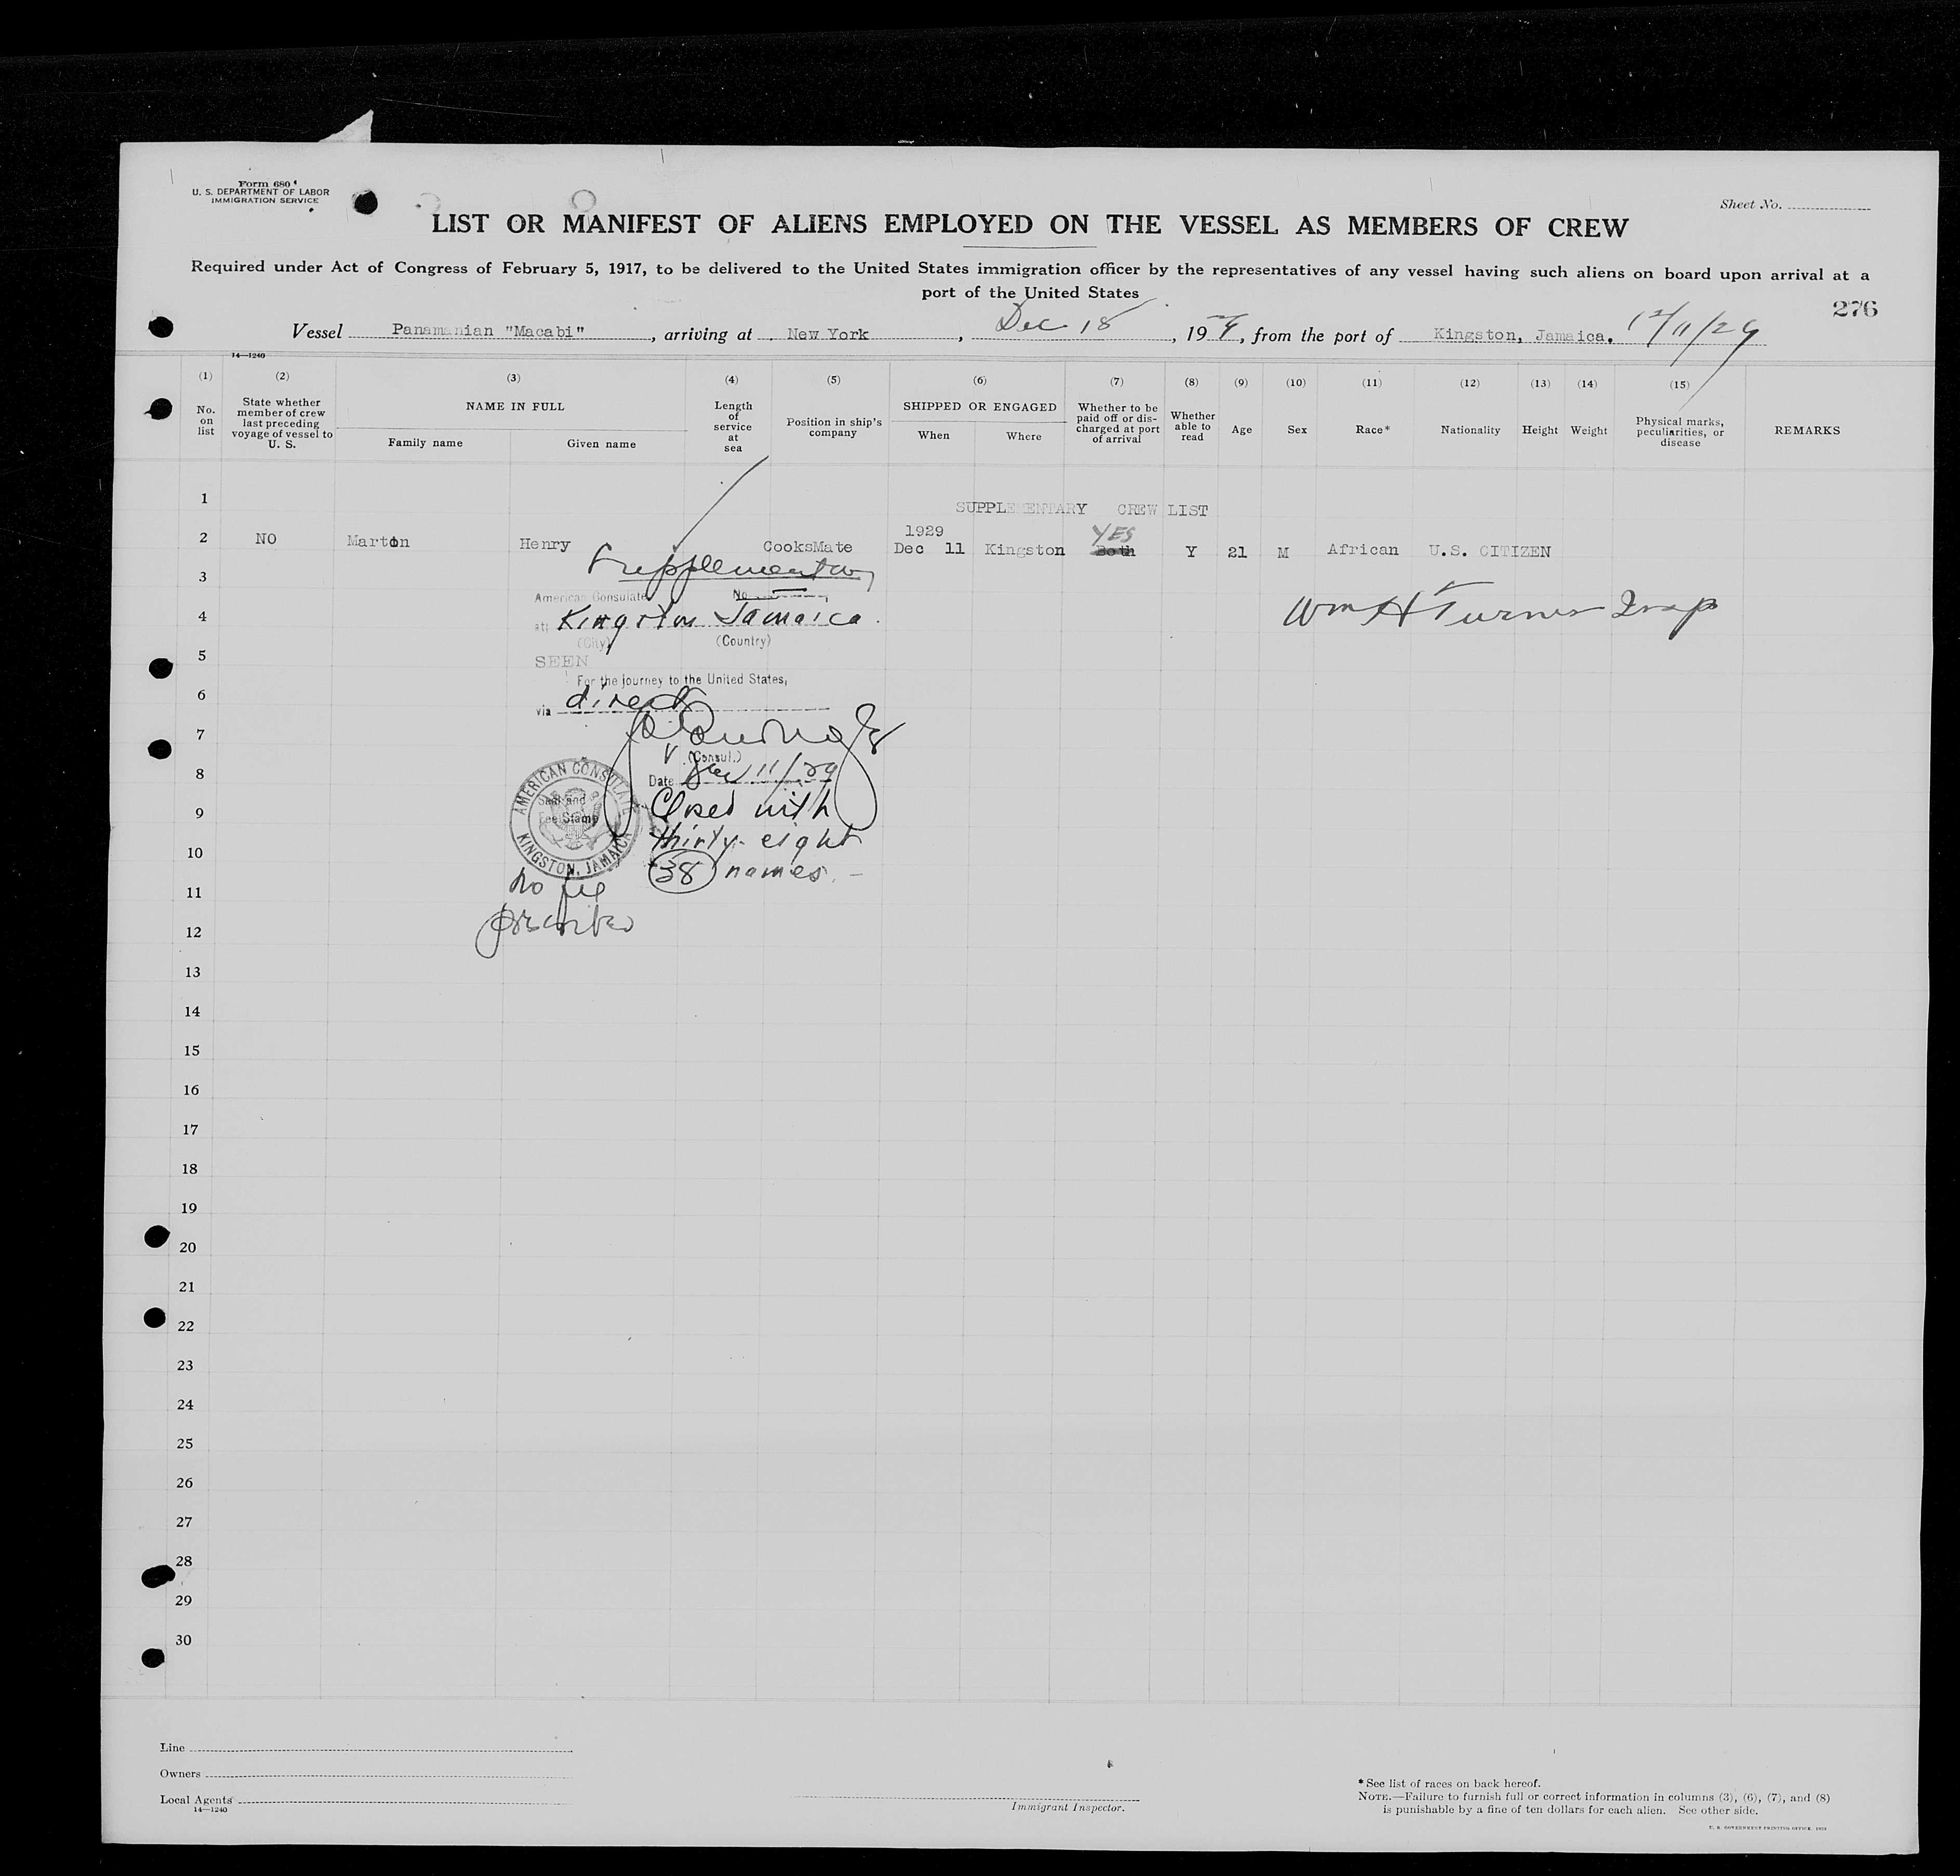 Form 680
U. S. DEPARTMENT OF LABOR
IMMIGRATION SERVICE
Sheet No.
LIST OR MANIFEST OF ALIENS EMPLOYED ON THE VESSEL AS MEMBERS OF CREW
Required under Act of Congress of February 5, 1917, to be delivered to the United States immigration officer by the representatives of any vessel having such aliens on board upon arrival at a
port of the United States
276
Vessel Panamanian "Macabi", arriving at New York, Dec 18, 1929, from the port of Kingston, Jamaica. 12/11/29
14—1240
(1) (2) (3) (4) (5) (6) (7) (8) (9) (10) (11) (12) (13) (14) (15)
No. on list
State whether member of crew last preceding voyage of vessel to U. S.
NAME IN FULL
Family name
Given name
Length of service at sea
Position in ship's company
SHIPPED OR ENGAGED
When
Where
Whether to be paid off or discharged at port of arrival
Whether able to read
Age
Sex
Race*
Nationality
Height
Weight
Physical marks, peculiarities, or disease
REMARKS
1
SUPPLEMENTARY CREW LIST
1929 YES
2 NO Martin Henry CooksMate Dec 11 Kingston Both Y 21 M African U.S. CITIZEN
Supplementary
3
American Consulate No.
Wm H Turner Insp
4
at: Kingston Jamaica.
(City) (Country)
5
SEEN
For the journey to the United States,
6
via direct
7
V (Consul.)
8
Date Dec 11/29
AMERICAN CONSULATE
KINGSTON, JAMAICA
Seal and
Fee Stamp
9
Closed with
thirty-eight
10
(38) names. —
No fee
11
prescribed
12
13
14
15
16
17
18
19
20
21
22
23
24
25
26
27
28
29
30
Line
Owners
Local Agents
14—1240
Immigrant Inspector.
* See list of races on back hereof.
NOTE.—Failure to furnish full or correct information in columns (3), (6), (7), and (8)
is punishable by a fine of ten dollars for each alien. See other side.
U. S. GOVERNMENT PRINTING OFFICE